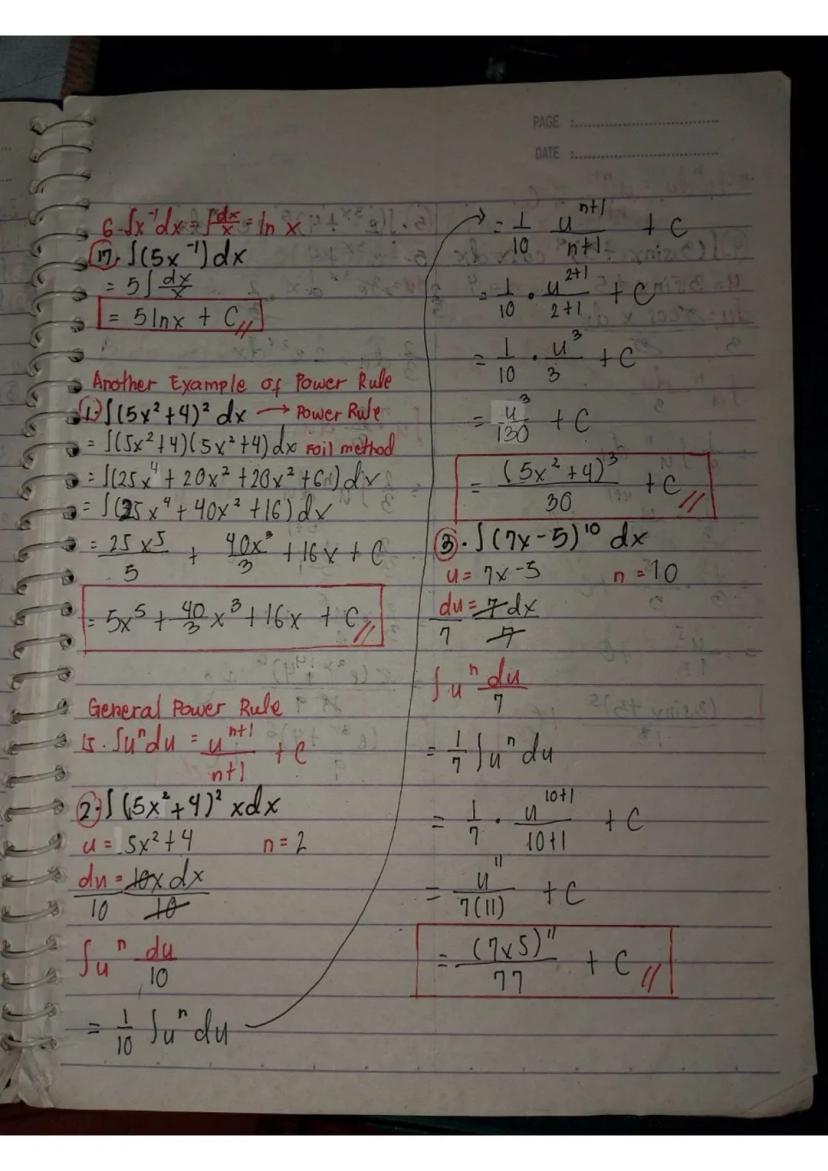 PAGE :
DATE :
6. ∫x⁻¹dx = ∫dx/x = ln x
17. ∫(5x⁻¹)dx
= 5∫dx/x
= 5lnx + C //
Another Example of Power Rule
1. ∫(5x²+4)² dx → Power Rule
= ∫(5x²+4)(5x²+4)dx Foil method
= ∫(25x⁴ + 20x² + 20x² + 6)dx
= ∫(25x⁴ + 40x² + 16)dx
= 25x⁵/5 + 40x³/3 + 16x + C
= 5x⁵ + 40/3 x³ + 16x + C //
General Power Rule
15. ∫uⁿdu = uⁿ⁺¹/n+1 + C
2. ∫(5x²+4)² xdx
u = 5x²+4 n = 2
du/10 = 10x dx/10
∫uⁿ du/10
= 1/10 ∫uⁿdu
= 1/10 uⁿ⁺¹/n+1 + C
= 1/10 · u²⁺¹/2+1 + C
= 1/10 · u³/3 + C
= u³/130 + C
= (5x²+4)³/30 + C //
3. ∫(7x-5)¹⁰ dx
u = 7x-5 n = 10
du/7 = 7dx/7
∫uⁿ du/7
= 1/7 ∫uⁿdu
= 1/7 · u¹⁰⁺¹/10+1 + C
= u¹¹/7(11) + C
= (7x5)¹¹/77 + C //